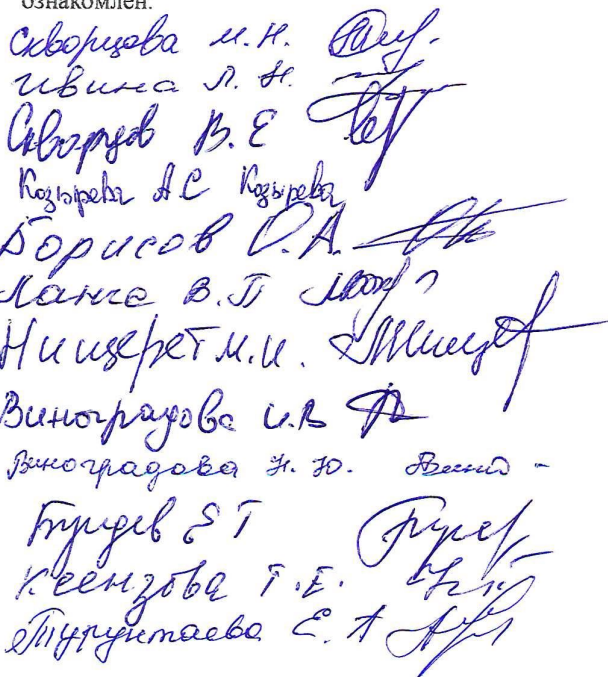 ознакомлен:
Скворцова М.Н.
Ивина Л.Н.
Скворцов В.Е
Козырева А С Козырева
Борисов О.А.
Ланге В.П
Нищерет М.И.
Виноградова И.В
Виноградова Н.Ю.
Е Т
Т.Е.
Турунтаева Е.А